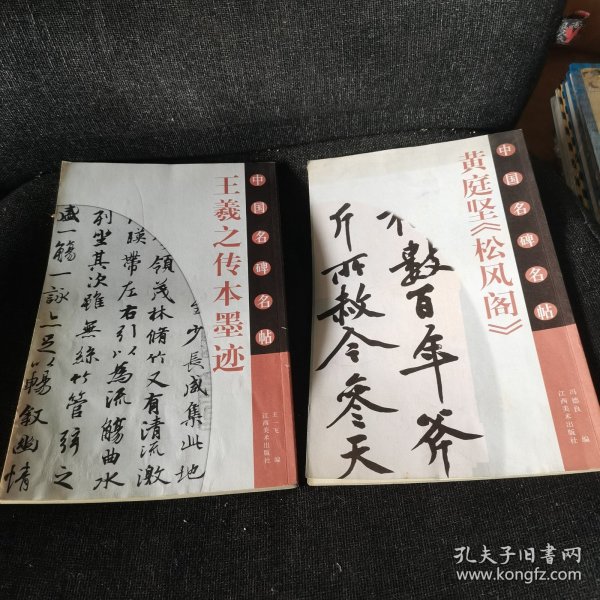 中国名碑名帖
王羲之传本墨迹
少長咸集此地
領茂林脩竹又有清流激
暎帶左右引以為流觴曲水
列坐其次雖無絲竹管弦之
盛一觴一詠亦足以暢敘幽情
王一飞 编
江西美术出版社
中国名碑名帖
黄庭坚《松风阁》
數百年斧
斤所赦令參天
冯德良 编
江西美术出版社
孔夫子旧书网
www.kongfz.com